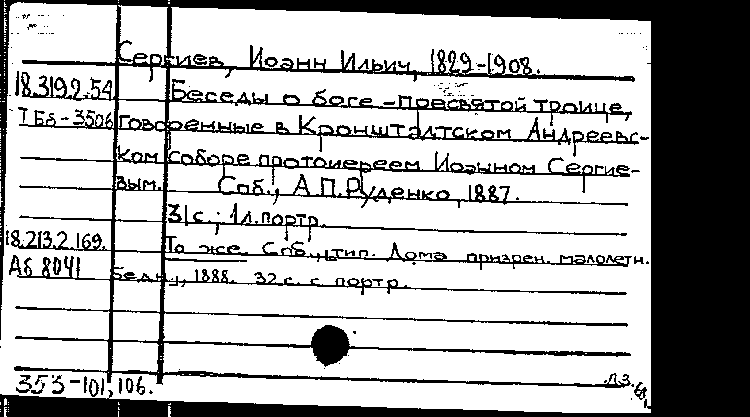 Сергиев, Иоанн Ильич, 1829-1908.
18.319.2.54 Беседы о боге-пресвятой троице,
Т Бб-3506 говоренные в Кронштадтском Андреевс-
ком соборе протоиереем Иоанном Сергие-
вым. Спб., А.П.Руденко, 1887.
31с.; 1л.портр.
18.213.2.169. То же. Спб., тип. Дома призрен. малолетн.
Аб 8041 бедн., 1888. 32 с. с портр.
353-101, 106.
л.з. 68.